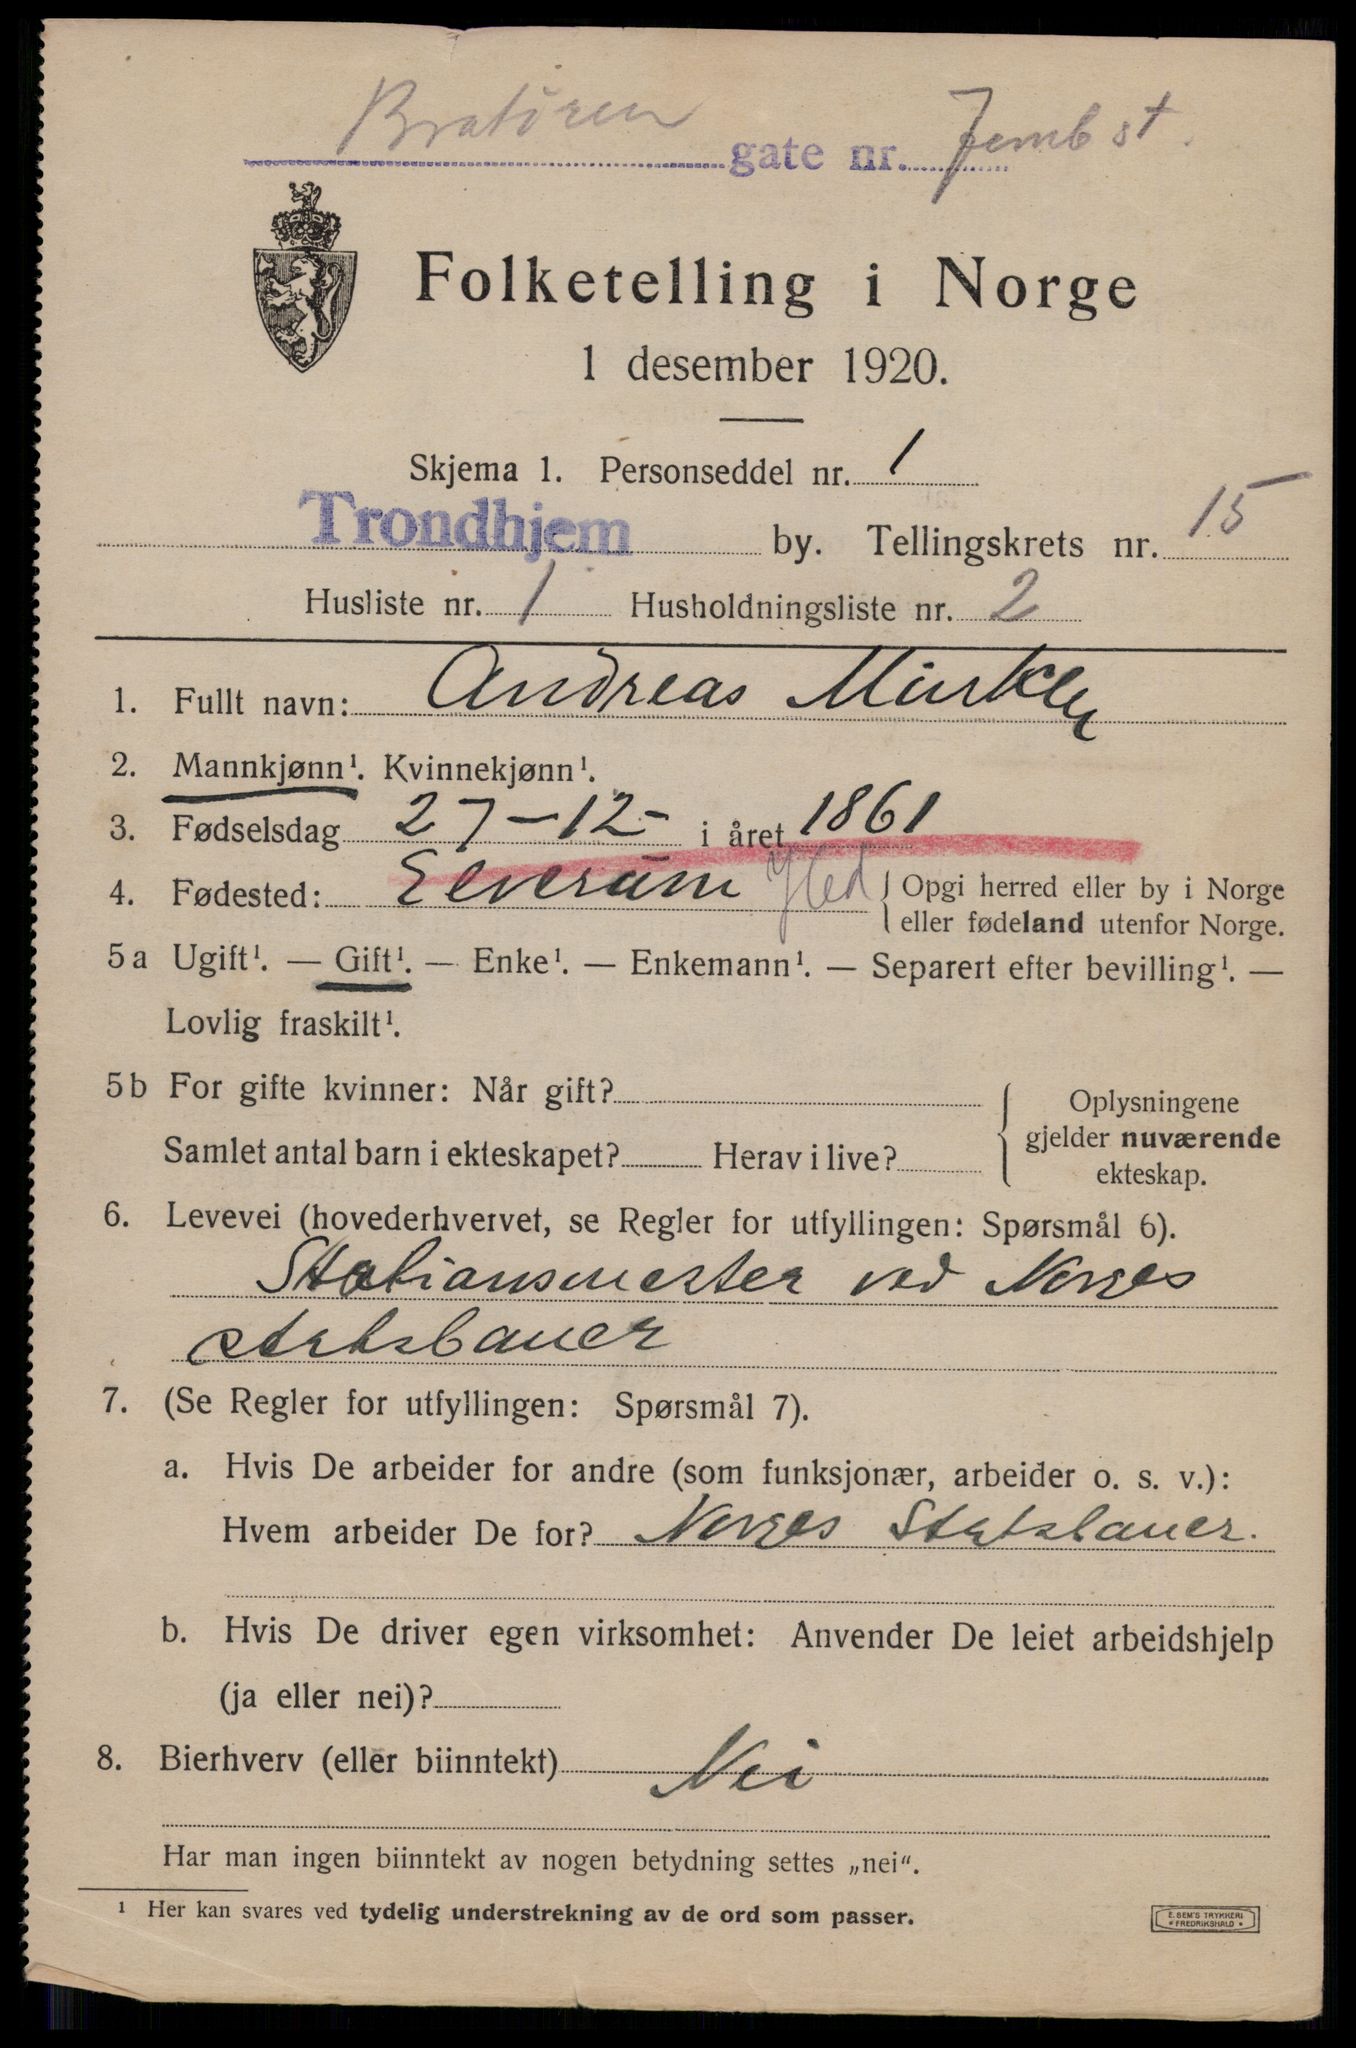 Bratøren gate nr. Jernbst.
Folketelling i Norge
1 desember 1920.
Skjema 1. Personseddel nr. 1
Trondhjem by. Tellingskrets nr. 15
Husliste nr. 1 Husholdningsliste nr. 2
1. Fullt navn: Andreas
2. Mannkjønn¹. Kvinnekjønn¹.
3. Fødselsdag 27-12- i året 1861
4. Fødested: Elverum Hed { Opgi herred eller by i Norge
eller fødeland utenfor Norge.
5a Ugift¹. — Gift¹. — Enke¹. — Enkemann¹. — Separert efter bevilling¹. —
Lovlig fraskilt¹.
5b For gifte kvinner: Når gift?
Samlet antal barn i ekteskapet? Herav i live?
{ Oplysningene
gjelder nuværende
ekteskap.
6. Levevei (hovederhvervet, se Regler for utfyllingen: Spørsmål 6).
Stationsmester ved Norges
statsbaner
7. (Se Regler for utfyllingen: Spørsmål 7).
a. Hvis De arbeider for andre (som funksjonær, arbeider o. s. v.):
Hvem arbeider De for? Norges Statsbaner.
b. Hvis De driver egen virksomhet: Anvender De leiet arbeidshjelp
(ja eller nei)?
8. Bierhverv (eller biinntekt) Nei
Har man ingen biinntekt av nogen betydning settes „nei“.
¹ Her kan svares ved tydelig understrekning av de ord som passer.
E. SEM'S TRYKKERI
* FREDRIKSHALD *